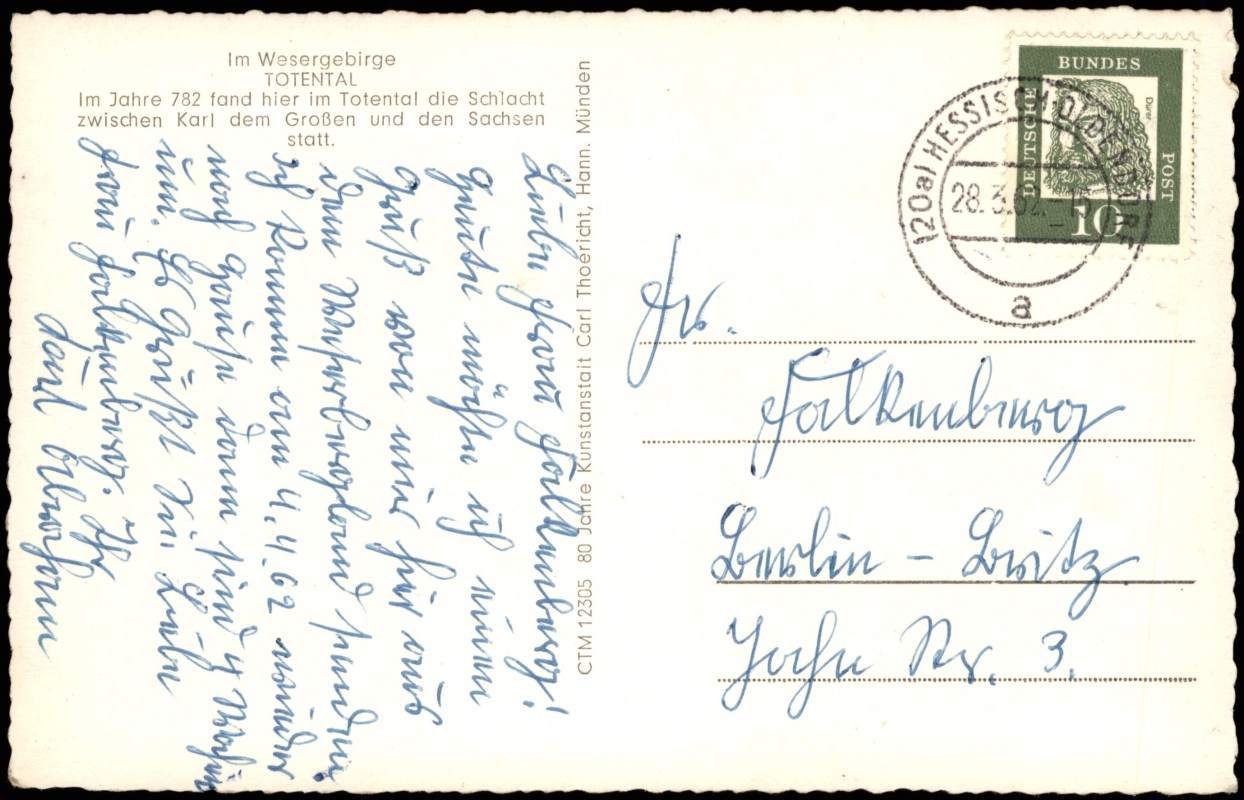 Im Wesergebirge
TOTENTAL
Im Jahre 782 fand hier im Totental die Schlacht
zwischen Karl dem Großen und den Sachsen
statt.
Liebe Frau Falkenberg!
Heute möchte ich einen
Gruß von mir hier aus
dem Weserbergland senden
ich komme am 4.4.62 wieder
nach Hause dann sind 4 Wochen
um. Es grüßt Sie Liebe
Frau Falkenberg. Ihr
CTM 12305 80 Jahre Kunstanstalt Carl Thoericht, Hann. Münden
DEUTSCHE BUNDES POST
Dürer
10
(20a) HESSISCH OLDENDORF
28.3.62.-15
a
Fr.
Falkenberg
Berlin - Britz
Jahn Str. 3.